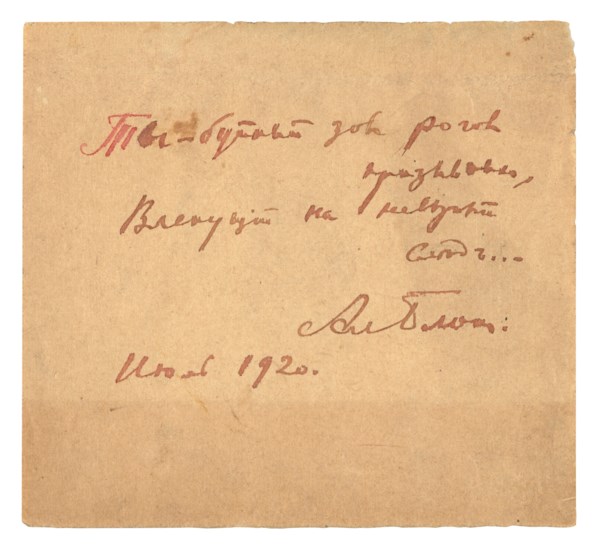 Ты – буйный зов рогов
призывных,
Влекущий на неверный
след...
Ал Блок.
Июль 1920.